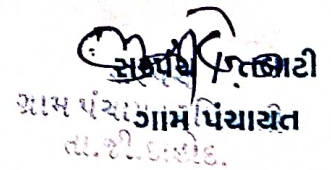 સરપંચ/તલાટી
ગ્રામ પંચાયત
ગ્રામ પંચા
તા.જી.દાહોદ.